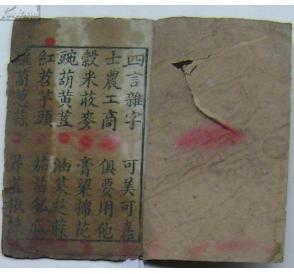 四言雜字 可美可嘉
士農工商 俱要用他
穀米菽麥 膏粱棉花
豌葫黃荳 油菜芝蔴
紅苕芋頭